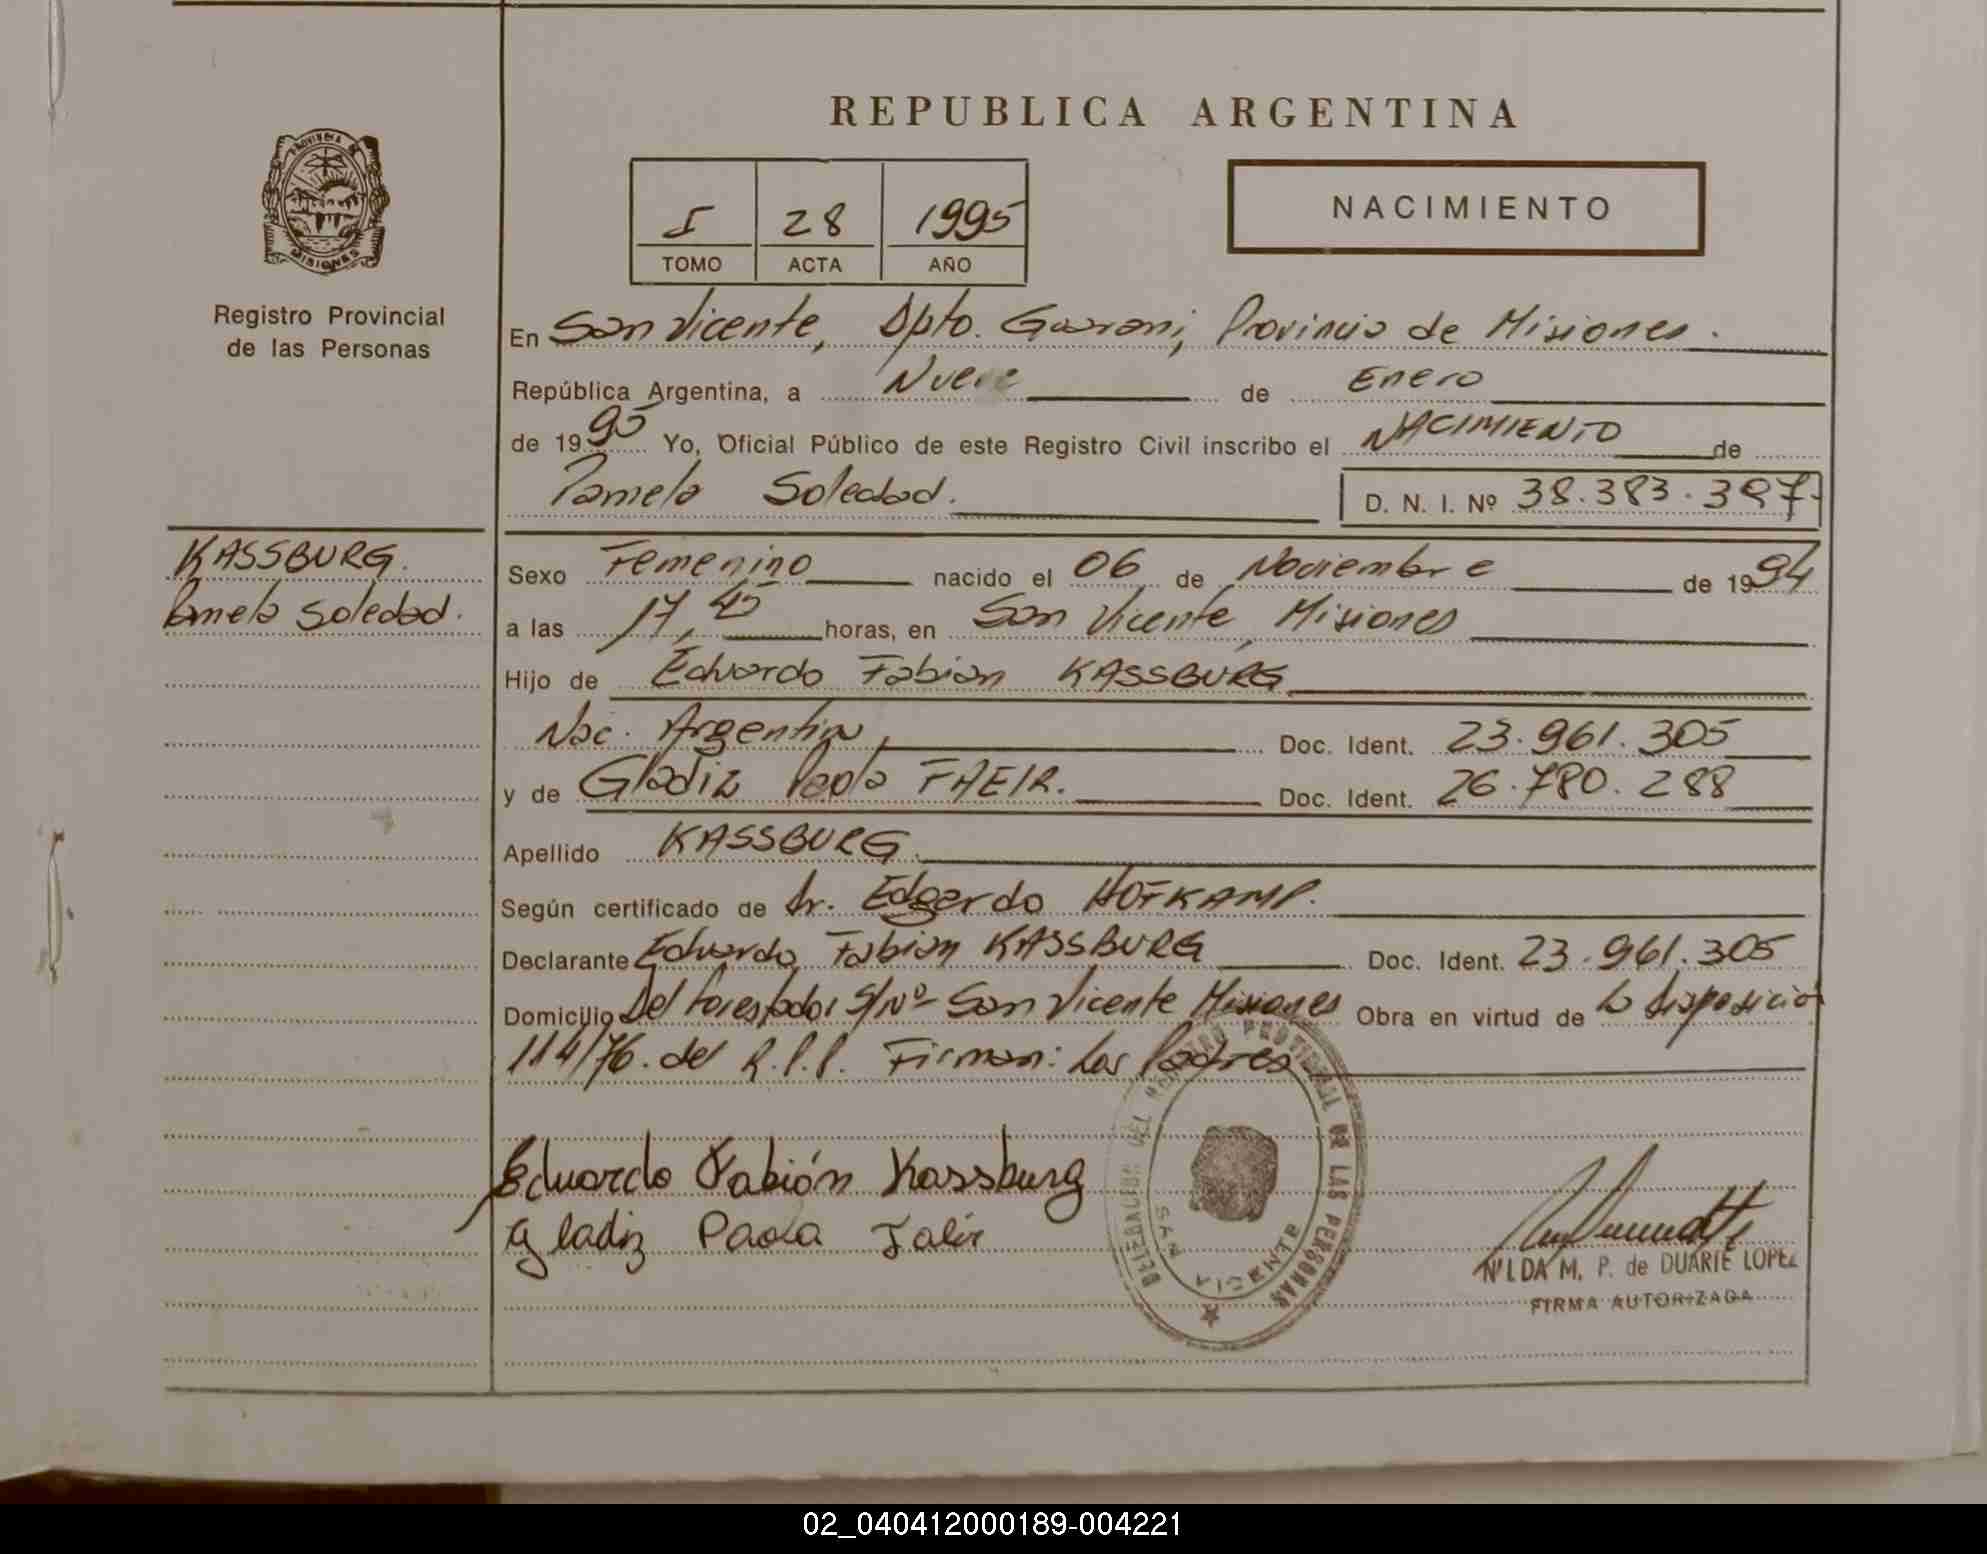 REPUBLICA ARGENTINA
PROVINCIA DE
MISIONES
Registro Provincial
de las Personas
I 28 1995
TOMO ACTA AÑO
NACIMIENTO
En San Vicente, Dpto. Guarani, Provincia de Misiones.
República Argentina, a Nueve de Enero
de 1995 Yo, Oficial Público de este Registro Civil inscribo el NACIMIENTO de
Pamela Soledad. D. N. I. Nº 38.383.397
KASSBURG.
Pamela Soledad.
Sexo Femenino nacido el 06 de Noviembre de 1994
a las 17,45 horas, en San Vicente, Misiones
Hijo de Eduardo Fabian KASSBURG
Nac. Argentina Doc. Ident. 23.961.305
y de Gladiz Paola FAEIR. Doc. Ident. 26.780.288
Apellido KASSBURG
Según certificado de Dr. Edgardo HOFKAMP.
Declarante Eduardo Fabian KASSBURG Doc. Ident. 23.961.305
Domicilio Del Forestador S/Nº San Vicente Misiones Obra en virtud de la disposición
114/76. del R.P.P. Firman: Los Padres
Eduardo Fabián Kassburg
Gladiz Paola
DELEGACION DEL REGISTRO PROVINCIAL DE LAS PERSONAS
SAN VICENTE
NILDA M. P. de DUARTE LOPEZ
FIRMA AUTORIZADA
02_040412000189-004221